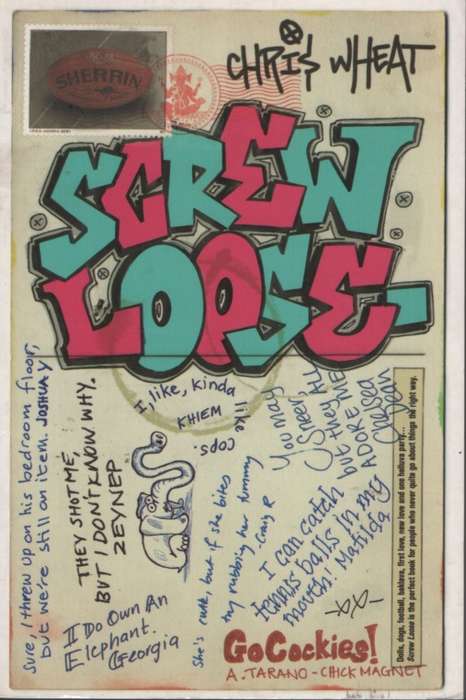 SHERRIN
CHRIS WHEAT
SCREW
LOOSE
Sure, I threw up on his bedroom floor,
but we're still an item. JOSHUA Y
THEY SHOT ME,
BUT I DON'T KNOW WHY.
ZEYNEP
I Do Own An
Elephant.
Georgia
I like, kinda like
KHIEM
cops.
She's cute, but if she bites
try rubbing her tummy
. Craig R
You may
Sneer,
but they ALL
ADORE ME
Chelsea
Dean
I can catch
tennis balls in my
mouth! Matilda
-xx-
Dolls, dogs, football, baklava, first love, new love and one helluva party...
Screw Loose is the perfect book for people who never quite go about things the right way.
Go Cockies!
A. TARANO - CHICK MAGNET